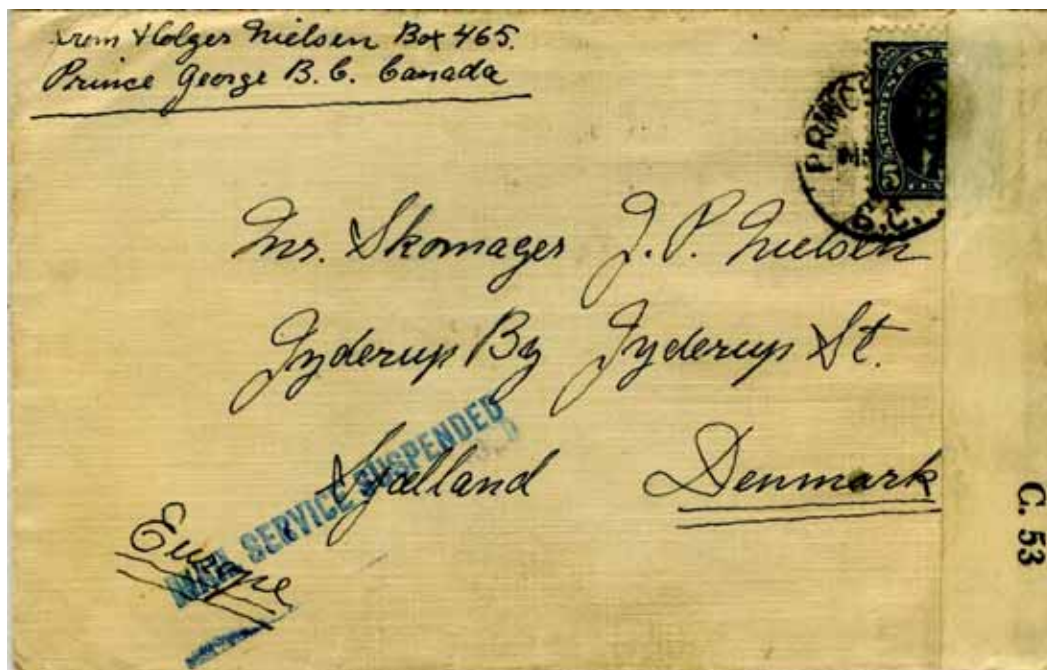 From Holger Nielsen Box 465.
Prince George B. C. Canada
PRINCE
B.C.
5
Mr. Skomager J. P. Nielsen
Jyderup By Jyderup St.
Sjælland Denmark
MAIL SERVICE SUSPENDED
Europe
C. 53